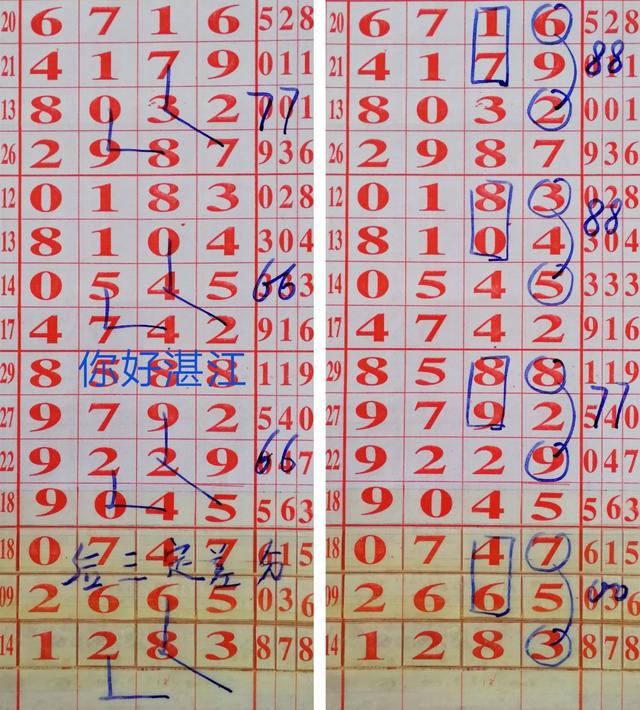 20 6 7 1 6 528 20 6 7 1 6 528
21 4 1 7 9 011 21 4 1 7 9 88
13 8 0 3 2 001 77 13 8 0 3 2 001
26 2 9 8 7 936 26 2 9 8 7 936
12 0 1 8 3 028 12 0 1 8 3 028
13 8 1 0 4 304 13 8 1 0 4 304 88
14 0 5 4 5 66 14 0 5 4 5 333
17 4 7 4 2 916 17 4 7 4 2 916
29 8 8 8 119 29 8 5 8 8 119
你好湛江
27 9 7 9 2 540 27 9 7 9 2 540 77
22 9 2 2 9 66 22 9 2 2 9 047
18 9 0 4 5 563 18 9 0 4 5 563
18 0 7 4 7 615 18 0 7 4 7 615
三定差
09 2 6 6 5 036 09 2 6 6 5 036
14 1 2 8 3 878 14 1 2 8 3 878